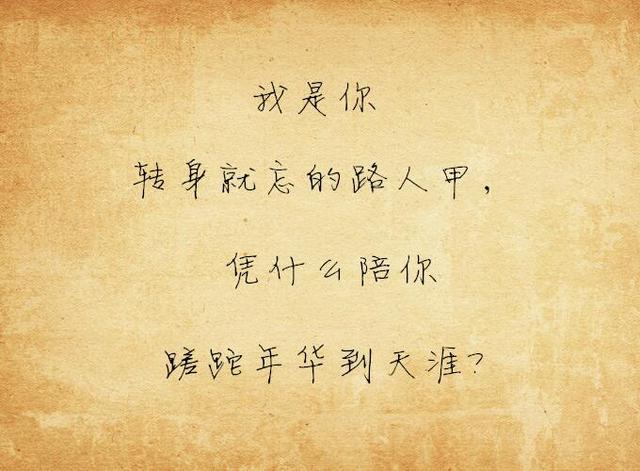 我是你
转身就忘的路人甲，
凭什么陪你
蹉跎年华到天涯？